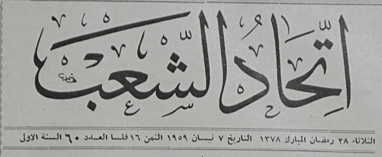 اتحاد الشعب
الثلاثاء ٢٨ رمضان المبارك ١٣٧٨ التاريخ ٧ نيسان ١٩٥٩ الثمن ١٦ فلسا العدد ٦٠ السنة الاولى